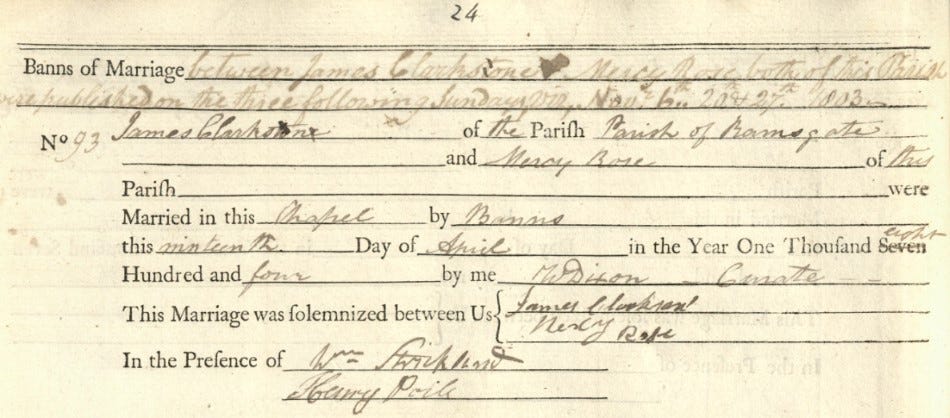 24
Banns of Marriage between James Clarkstone & Mercy Rose both of this Parish
were published on the three following Sundays viz, Nov.r 6th 20th & 27th 1803
No 93 James Clarkstone of the Pariſh Parish of Ramsgate
and Mercy Rose of this
Pariſh were
Married in this Chapel by Banns
this ninteenth Day of April in the Year One Thousand Seven eight
Hundred and four by me W Dixon Curate
This Marriage was ſolemnized between Us { James Clarkson
Mercy Rose
In the Preſence of Wm Strickland
Henry Poile